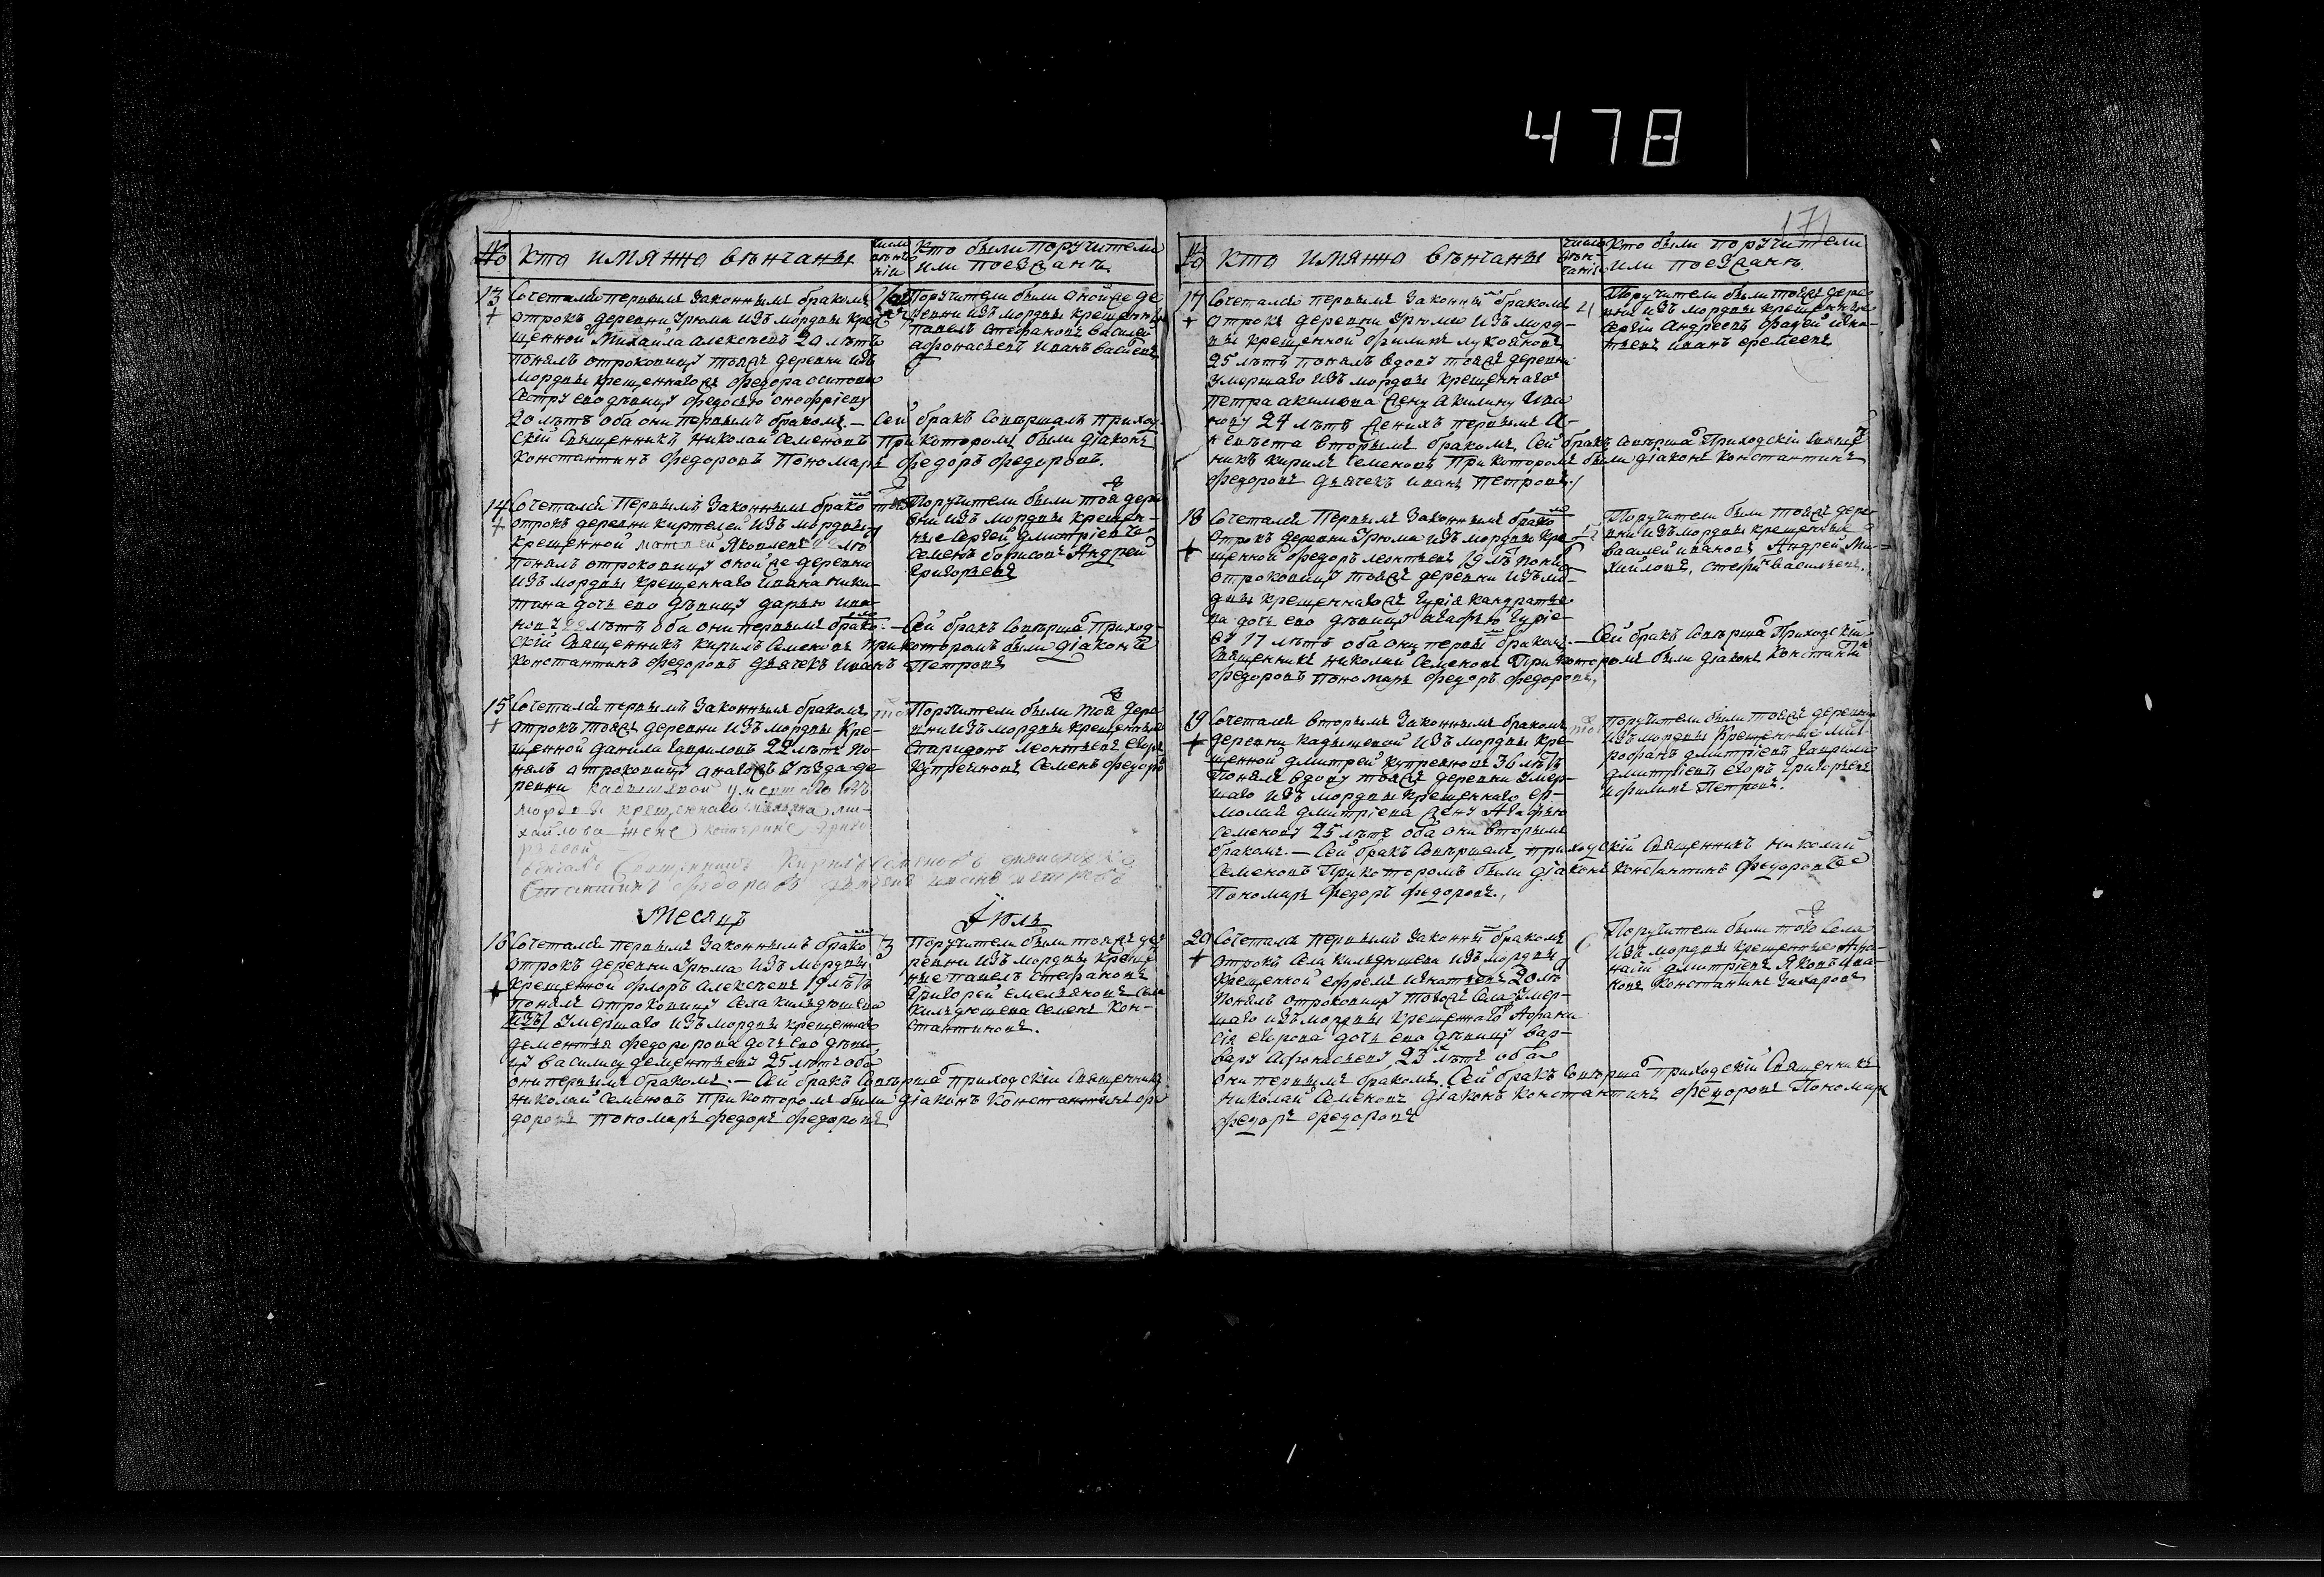 478
171
№ Кто имянно венчаны число венчанiя Кто были поручители или поезжанѣ
13 Сочетался первымъ законнымъ бракомъ
отрокъ деревни Урюма изъ мордвы кре-
щенной Михаила Алексѣевъ 20 лѣтъ
понялъ отроковицу тоя же деревни изъ
мордвы крещеннаго Федора Осипова
сестру ево дѣвицу Федосью Онофрiеву
20 лѣтъ оба они первымъ бракомъ. — Сей бракъ совершалъ приход-
скiй священникъ Николай Семеновъ при которомъ были дiаконъ
Константинъ Федоровъ пономарь Федоръ Федоровъ.
Поручители были оной же де-
ревни изъ мордвы крещенныя
Павелъ Стефановъ Василей
Афонасьевъ Иванъ
14 Сочетался первымъ законнымъ бракомъ
отрокъ деревни Киртелей изъ мордвы
крещенной Матвей Яковлевъ лѣ
понялъ отроковицу оной же деревни
изъ мордвы крещеннаго Ивана Ники-
тина дочь ево дѣвицу Дарью Ива-
нову 22 лѣтъ оба они первымъ бракомъ. — Сей бракъ соверша приход-
скiй священникъ Кирилъ Семеновъ при которомъ были дiаконъ
Константинъ Федоровъ дьячекъ Иванъ Петровъ
Поручители были той же дерев-
ни изъ мордвы крещен-
ные Сергей Дмитрiевъ
Семенъ Борисовъ Андрей
Григорьевъ
15 Сочетался первымъ законнымъ бракомъ
отрокъ тоя же деревни изъ мордвы кре-
щенной Данила Гавриловъ 22 лѣтъ по-
нялъ отроковицу онаго же уезда де-
ревни Кадышевой умершаго изъ
мордвы крещеннаго ми-
хайлова жене Катерине Григо-
рьевой
венчалъ священникъ Кирилъ Семеновъ дьяконъ Ко-
стантинъ Федоровъ дьячекъ Иванъ Петровъ
Поручители были той же дерев-
ни изъ мордвы крещенныя
Спиридонъ Леонтьевъ Егоръ
Купреяновъ Семенъ Федоровъ
Месяцъ Iюль
16 Сочетался первымъ законнымъ бракомъ 3
отрокъ деревни Урюма изъ мордвы
крещенной Флоръ Алексѣевъ 19 лѣтъ
понялъ отроковицу села Кильдюшева
изъ умершаго изъ мордвы крещеннаго
Дементья Федоророва дочь ево дѣви-
цу Василису Дементьеву 25 лѣтъ оба
они первымъ бракомъ. — Сей бракъ соверша приходскiй священникъ
Николай Семеновъ при которомъ были дiаконъ Константинъ Фе-
доровъ пономарь Федоръ Федоровъ
Поручители были тоя же де-
ревни изъ мордвы креще-
ные Павелъ Стефановъ
Григорей Емельяновъ села
Кильдюшева Семенъ Кон-
стантиновъ.
№ Кто имянно венчаны число вен-чанiя Кто были поручители или поезжанѣ.
17 Сочетался первымъ законны бракомъ 4
отрокъ деревни Урюми изъ морд-
вы крещенной Филипъ Лукояновъ
25 лѣтъ понялъ вдову тоя же деревни
умершаго изъ мордвы крещеннаго
Петра Акимова жену Акилину Ива-
нову 24 лѣтъ женихъ первымъ а-
невѣста вторымъ бракомъ. Сей бракъ соверша приходскiй священ-
никъ Кирилъ Семеновъ при которомъ были дiаконъ Константинъ
Федоровъ дьячекъ Иванъ Петровъ.
Поручители были тоя же дерев-
ни изъ мордвы крещенные
Сергiй Андреевъ Фадей Игна-
тьевъ Иванъ Еремеевъ
18 Сочетался первымъ законнымъ бракомъ
отрокъ деревни Урюма изъ мордвы кре-
щенной Федоръ Леонтьевъ 19 лѣтъ поня
отроковицу тоя же деревни изъ мо-
рдвы крещеннаго же Гурiя Кандратье-
ва дочь ево дѣвицу Агафью Гурiе-
ву 17 лѣтъ оба они первы бракомъ. — Сей бракъ соверша приходскiй
священникъ Николай Семеновъ при которомъ были дiаконъ Константинъ
Федоровъ пономарь Федоръ Федоровъ.
Поручители были тоя же дерев-
вни изъ мордвы крещенные
Василей Ивановъ Андрей Ми-
хайловъ, Стефа Васильевъ.
19 Сочетался вторымъ законнымъ бракомъ
деревни Кадышевой изъ мордвы кре-
щенной Дмитрей Купреяновъ 36 лѣтъ
понялъ вдову тоя же деревни умер-
шаго изъ мордвы крещеннаго Ер-
молая Дмитрiева жену Агафью
Семенову 25 лѣтъ оба они вторымъ
бракомъ. — Сей бракъ совершалъ приходскiй священникъ Николай
Семеновъ при которомъ были дiаконъ Константинъ Федоровъ
пономарь Федоръ Федоровъ.
Поручители были тоя же деревни
изъ мордвы крещенные Мит-
рофанъ Дмитрiевъ Гаврила
Дмитрiевъ Егоръ Григорьевъ
и Филипъ Петровъ.
20 Сочетался первымъ законны бракомъ
отрокъ села Кильдюшева изъ мордвы
крещенной Ефремъ Игнатьевъ 20 лѣ
понялъ отроковицу того же села умер-
шаго изъ мордвы крещеннаго Афана-
сiя Егорова дочь ево дѣвицу Вар-
вару Афонасьеву 23 лѣтъ оба
они первымъ бракомъ. Сей бракъ соверша приходскiй священникъ
Николай Семеновъ дiаконъ Константинъ Федоровъ пономарь
Федоръ Федоровъ
Поручители были того села
изъ мордвы крещенные Ана-
нiй Дмитрiевъ Яковъ Ива-
новъ Константинъ Захаровъ